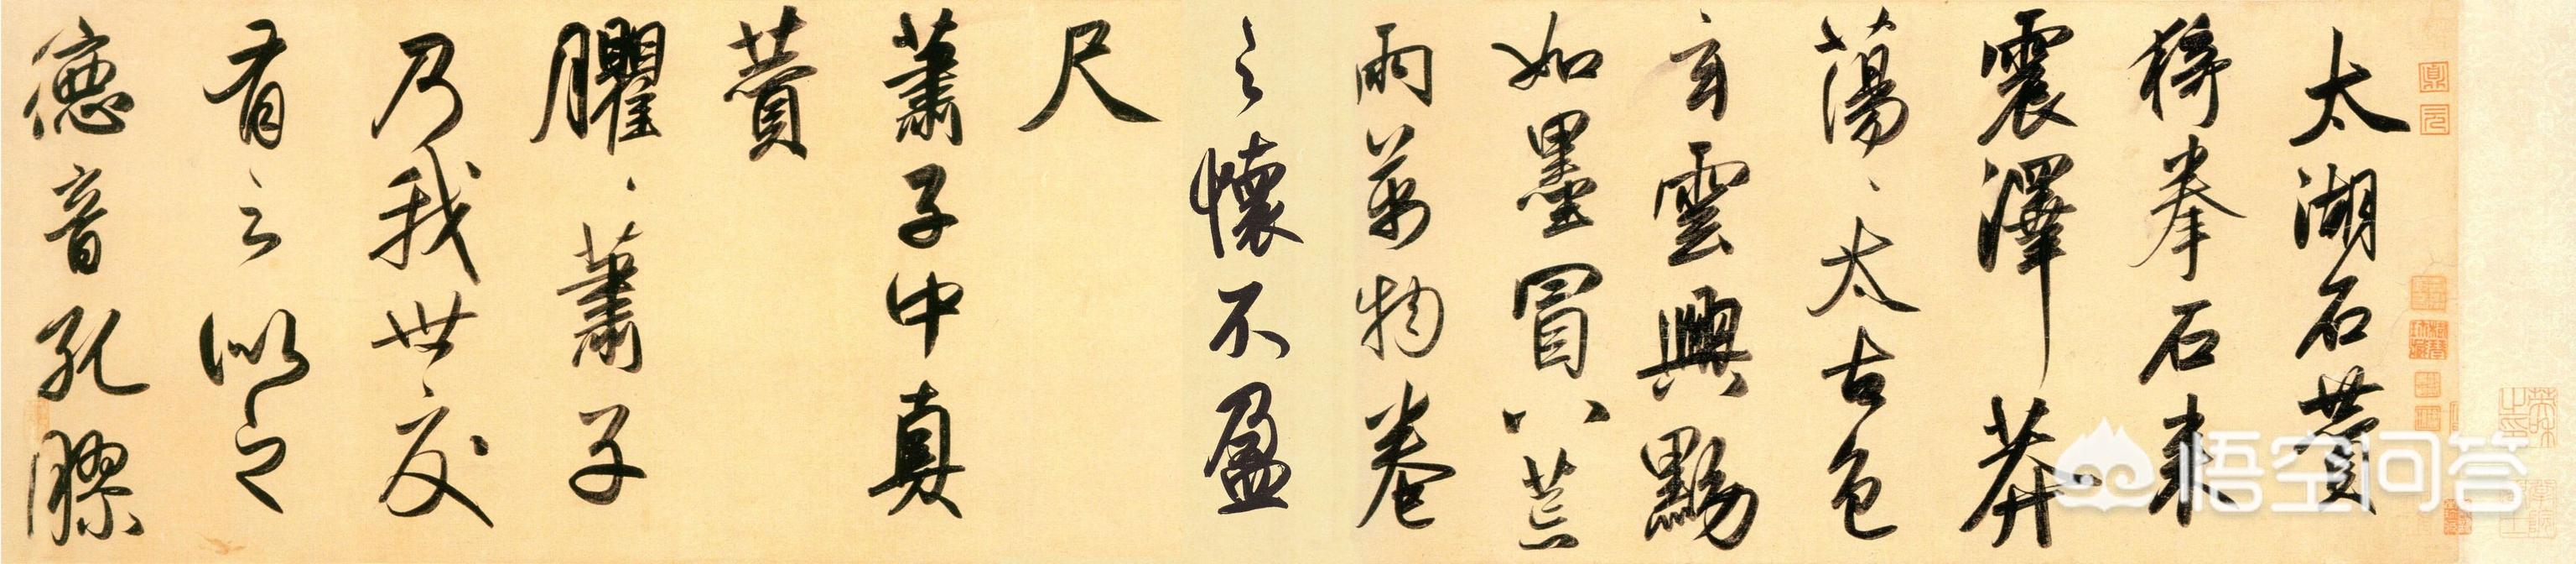 太湖石贊
猗拳石來
震澤莽
蕩、太古色
玄雲興黝
如墨冒八荒
雨萬物卷
之懷不盈
尺
蕭子中真
贊
臞、蕭子
乃我世交
有之似之
德音孔膠
悟空问答